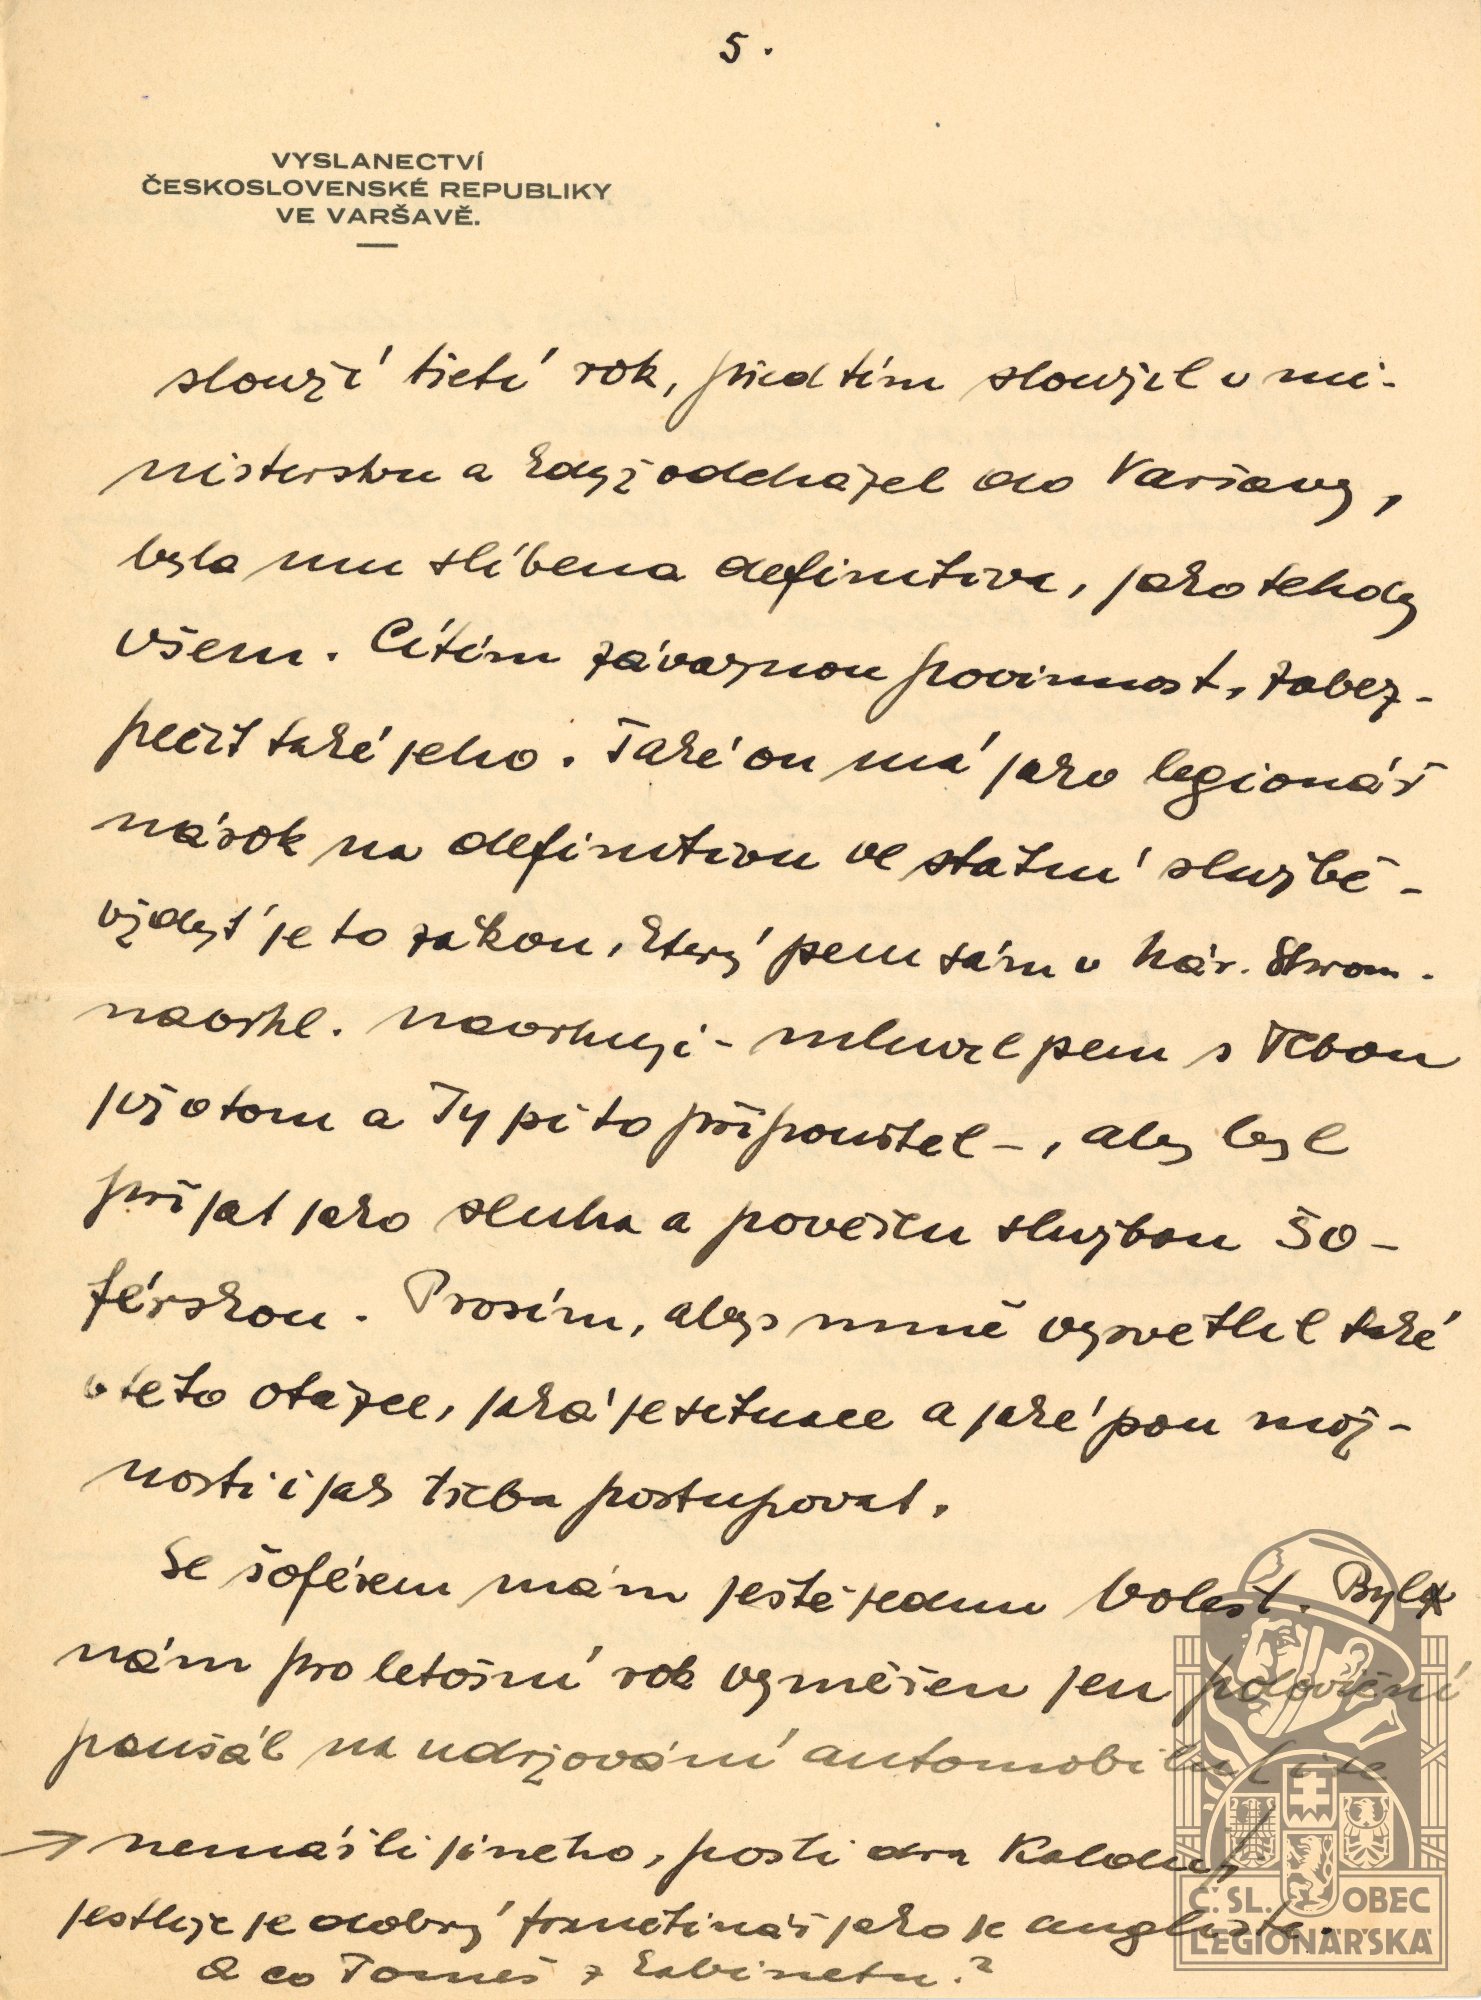 5.
VYSLANECTVÍ
ČESKOSLOVENSKÉ REPUBLIKY
VE VARŠAVĚ.
slouží třetí rok, před tím sloužil v mi-
nisterstvu a když odcházel do Varšavy,
byla mu slíbena definitiva, jako tehdy
všem. Cítím závaznou povinnost, zabez-
pečit také jeho. Také on má jako legionář
nárok na definitivu ve státní službě -
vždyť je to zákon, který jsem sám v Nár. Shrom.
navrhl. Navrhuji - mluvil jsem s Tebou
již o tom a Ty jsi to připouštěl -, aby byl
přijat jako sluha a pověřen službou šo-
férskou. Prosím, abys mně vysvětlil také
v této otázce, jaká je situace a jaké jsou mož-
nosti i jak třeba postupovat.
Se šoférem mám ještě jednu bolest. Byl
nám pro letošní rok vyměřen jen poloviční
paušál na udržování automobilu
→ nemáš-li jiného, pošli dra Kaldu,
jestliže je dobrý francštinář jako je anglista.
A co Tomeš z kabinetu?
Č. SL. OBEC
LEGIONÁŘSKÁ